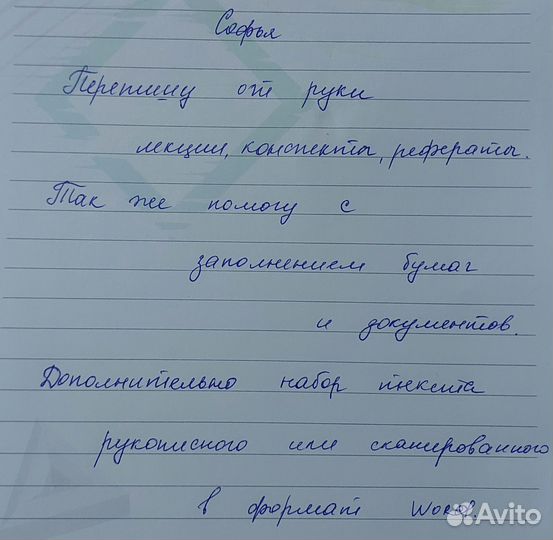 Софья
Перепишу от руки
лекции, конспекты, рефераты.
Так же помогу с
заполнением бумаг
и документов.
Дополнительно набор текста
рукописного или сканированного
в формат Word.
Avito